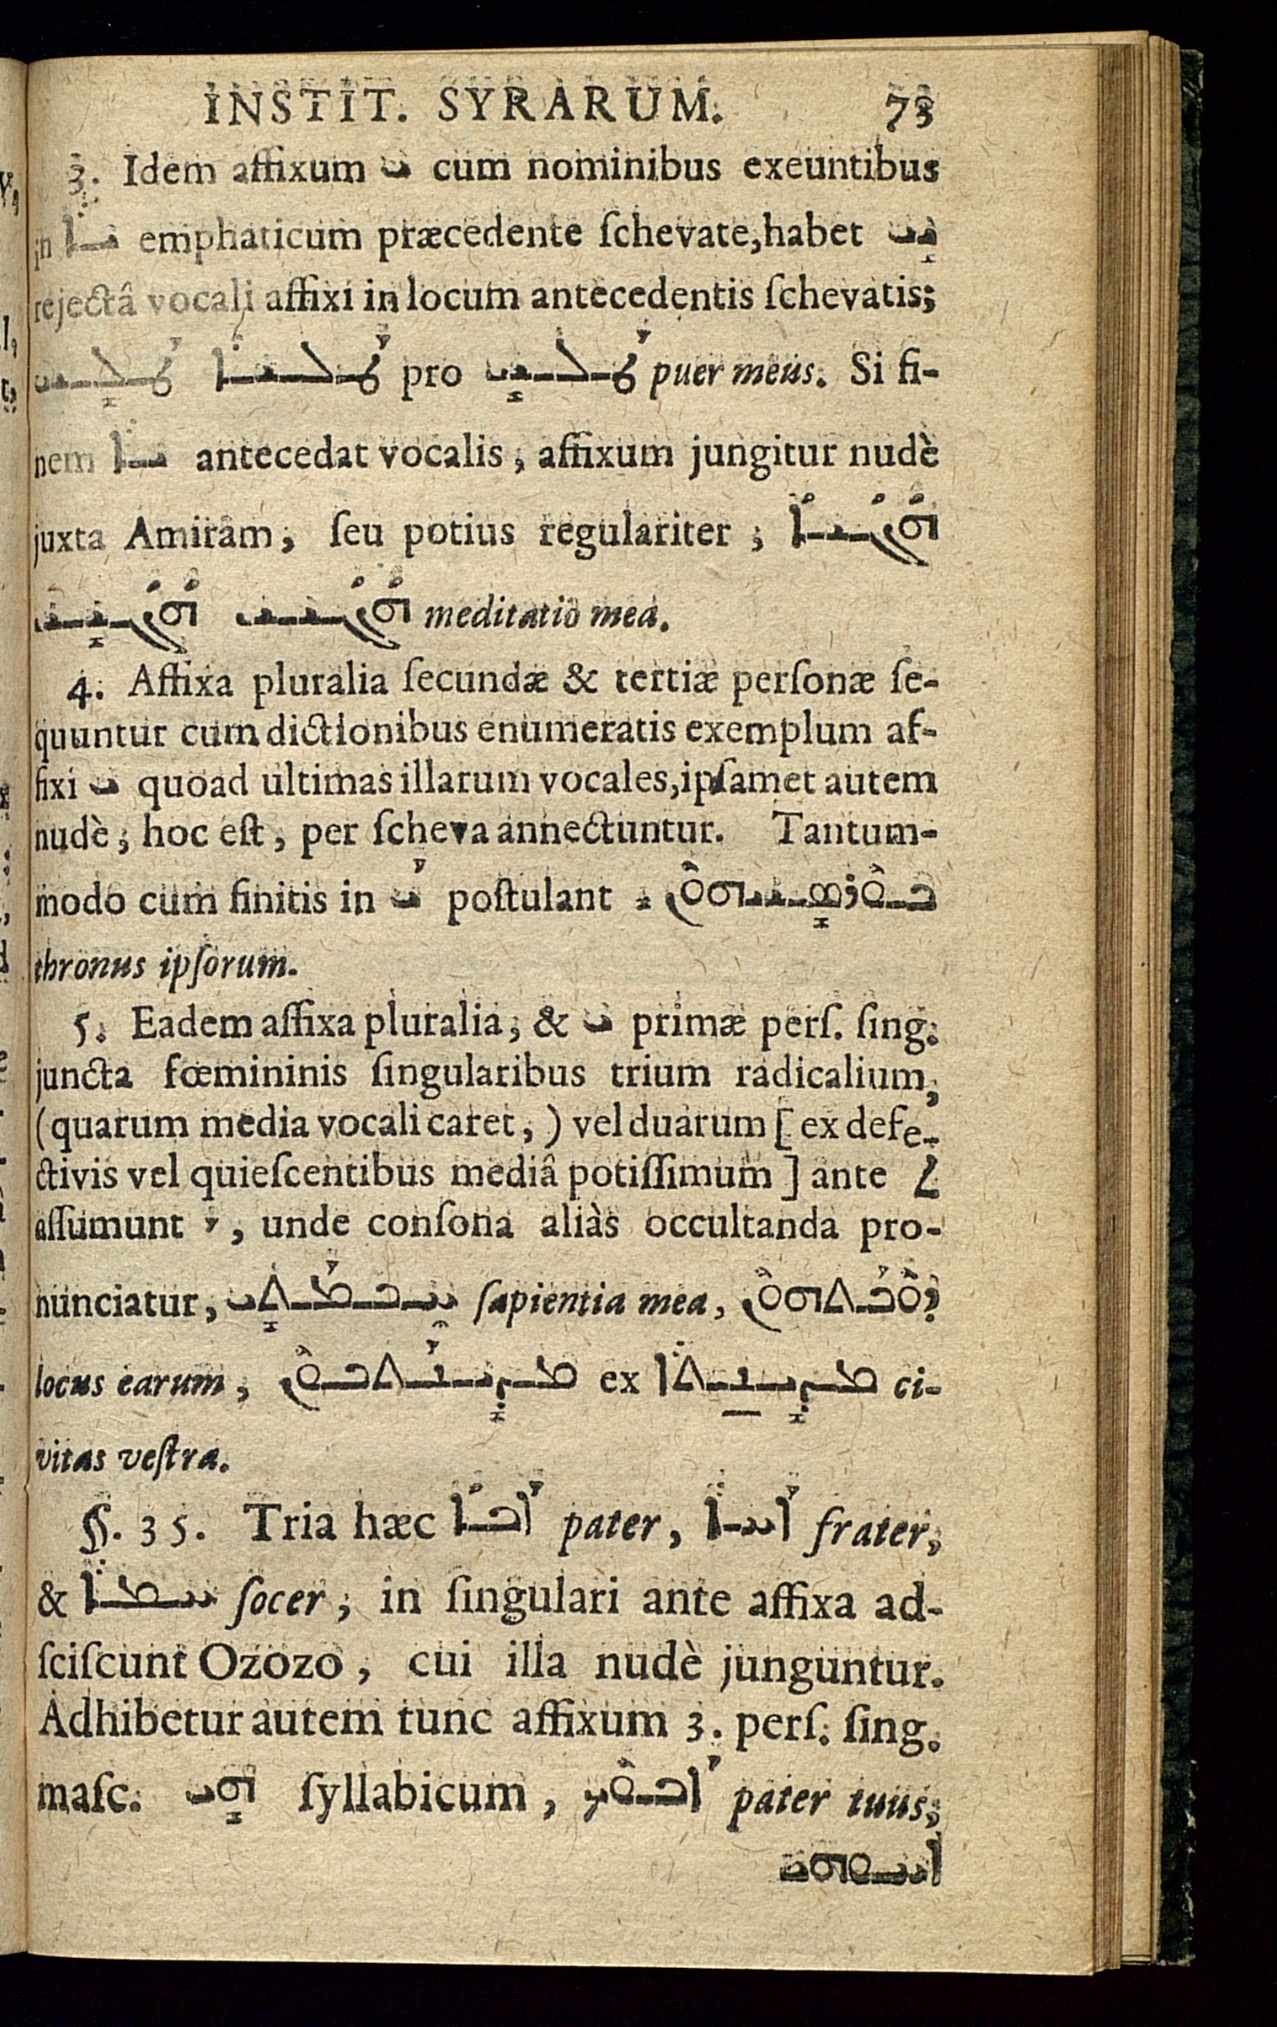 INSTIT. SYRARUM. 73
3. Idem affixum ܝ cum nominibus exeuntibus
in ܝܐ emphaticum præcedente ſchevate, habet ܝܝ
rejectâ vocali affixi in locum antecedentis ſchevatis;
ܛܠܝܝ ܛܠܝܐ pro ܛܠܝܝ puer meus. Si fi-
nem ܝܐ antecedat vocalis, affixum jungitur nudè
juxta Amiram, ſeu potius regulariter; ܗܪܓܝܐ
meditatio mea.
4. Affixa pluralia ſecundæ & tertiæ perſonæ ſe-
quuntur cum dictionibus enumeratis exemplum af-
fixi ܝ quoad ultimas illarum vocales, ipſamet autem
nudè; hoc eſt, per ſcheva annectuntur. Tantum-
modo cum finitis in ܝ poſtulant ܟܘܪܣܝܗܘܢ
thronus ipſorum.
5. Eadem affixa pluralia, & ܝ primæ perſ. ſing.
juncta fœmininis ſingularibus trium radicalium,
(quarum media vocali caret,) vel duarum [ex defe-
ctivis vel quieſcentibus mediâ potiſſimum] ante ܬ
aſſumunt , unde conſona aliàs occultanda pro-
nunciatur, ܚܟܡܬܝ ſapientia mea, ܕܘܟܬܗܘܢ
locus earum, ܡܕܝܢܬܟܘܢ ex ܡܕܝܢܬܐ ci-
vitas veſtra.
§. 35. Tria hæc ܐܒܐ pater, ܐܚܐ frater,
& ܚܡܐ ſocer, in ſingulari ante affixa ad-
ſciſcunt Ozozo, cui illa nudè junguntur.
Adhibetur autem tunc affixum 3. perſ. ſing.
maſc. ܗܝ ſyllabicum, ܐܒܘܟ pater tuus,
ܐܚܘܗܝ